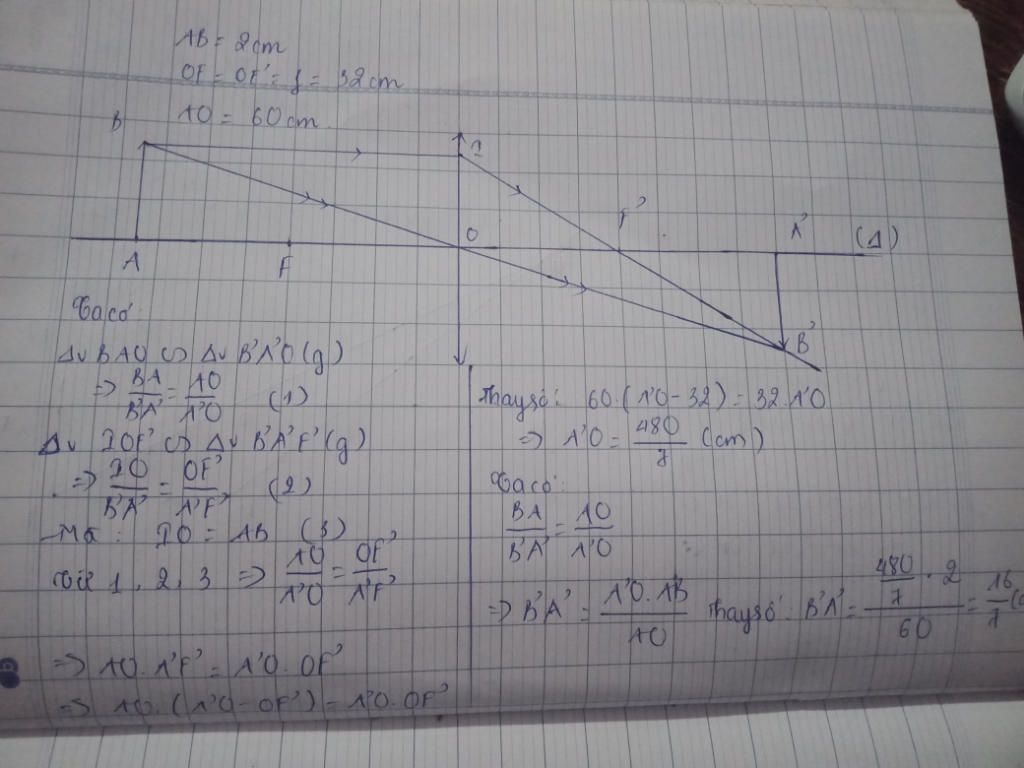 AB = 2cm
OF = OF' = f = 32cm
AO = 60cm
B
I
F'
A'
(Δ)
O
A
F
B'
Ta có:
Δv BAO ∽ Δv B'A'O (g)
=> BA/B'A' = AO/A'O (1)
Δv IOF' ∽ Δv B'A'F' (g)
=> IO/B'A' = OF'/A'F' (2)
Mà: IO = AB (3)
Từ 1, 2, 3 => AO/A'O = OF'/A'F'
=> AO.A'F' = A'O.OF'
=> AO.(A'O-OF') = A'O.OF'
Thay số: 60.(A'O-32) = 32.A'O
=> A'O = 480/7 (cm)
Ta có:
BA/B'A' = AO/A'O
=> B'A' = A'O.AB/AO Thay số: B'A' = (480/7 . 2)/60 = 16/7 (c